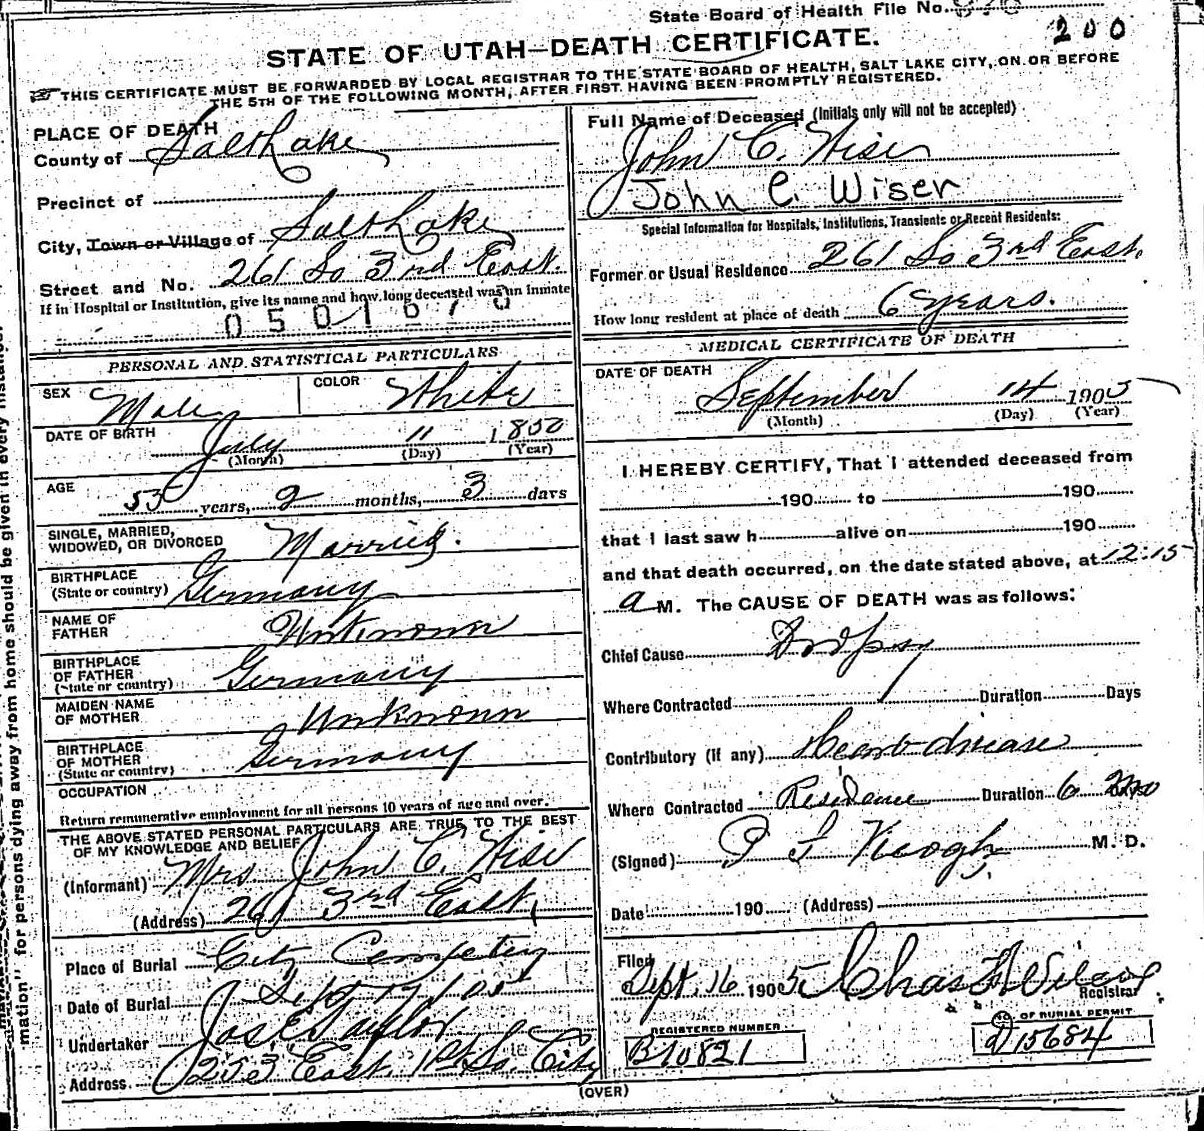 State Board of Health File No.
200
STATE OF UTAH—DEATH CERTIFICATE.
THIS CERTIFICATE MUST BE FORWARDED BY LOCAL REGISTRAR TO THE STATE BOARD OF HEALTH, SALT LAKE CITY, ON OR BEFORE
THE 5TH OF THE FOLLOWING MONTH, AFTER FIRST HAVING BEEN PROMPTLY REGISTERED.
PLACE OF DEATH
County of Salt Lake
Precinct of
City, Town or Village of Salt Lake
Street and No. 261 So 3rd East.
If in Hospital or Institution, give its name and how long deceased was an inmate
0501670
PERSONAL AND STATISTICAL PARTICULARS
SEX Male COLOR White
DATE OF BIRTH July 11 1850
(Month) (Day) (Year)
AGE 53 years, 2 months, 3 days
SINGLE, MARRIED,
WIDOWED, OR DIVORCED Married.
BIRTHPLACE
(State or country) Germany
NAME OF
FATHER Unknown
BIRTHPLACE
OF FATHER
(State or country) Germany
MAIDEN NAME
OF MOTHER Unknown
BIRTHPLACE
OF MOTHER
(State or country) Germany
OCCUPATION
Return remunerative employment for all persons 10 years of age and over.
THE ABOVE STATED PERSONAL PARTICULARS ARE TRUE TO THE BEST
OF MY KNOWLEDGE AND BELIEF
(Informant) Mrs John C. Wise
(Address) 261 3rd East,
Place of Burial City Cemetery
Date of Burial Sept 17 05
Undertaker Jos. E. Taylor
Address 253 East 1st So. City
Full Name of Deceased (Initials only will not be accepted)
John C. Wiser
John C. Wiser
Special Information for Hospitals, Institutions, Transients or Recent Residents:
Former or Usual Residence 261 So 3rd East.
How long resident at place of death 6 years.
MEDICAL CERTIFICATE OF DEATH
DATE OF DEATH
September 14 1905
(Month) (Day) (Year)
I HEREBY CERTIFY, That I attended deceased from
190 to 190
that I last saw h alive on 190
and that death occurred, on the date stated above, at 12:15
a M. The CAUSE OF DEATH was as follows:
Chief Cause Dropsy
Where Contracted Duration Days
Contributory (if any) Heart disease
Where Contracted Residence Duration 6 mo
(Signed) P F Keogh M. D.
Date 190 (Address)
Filed
Sept. 16 1905 Chas F Wilcox
Registrar
REGISTERED NUMBER
B10821
NO OF BURIAL PERMIT
D15684
(OVER)
mation" for persons dying away from home should be given in every instance.